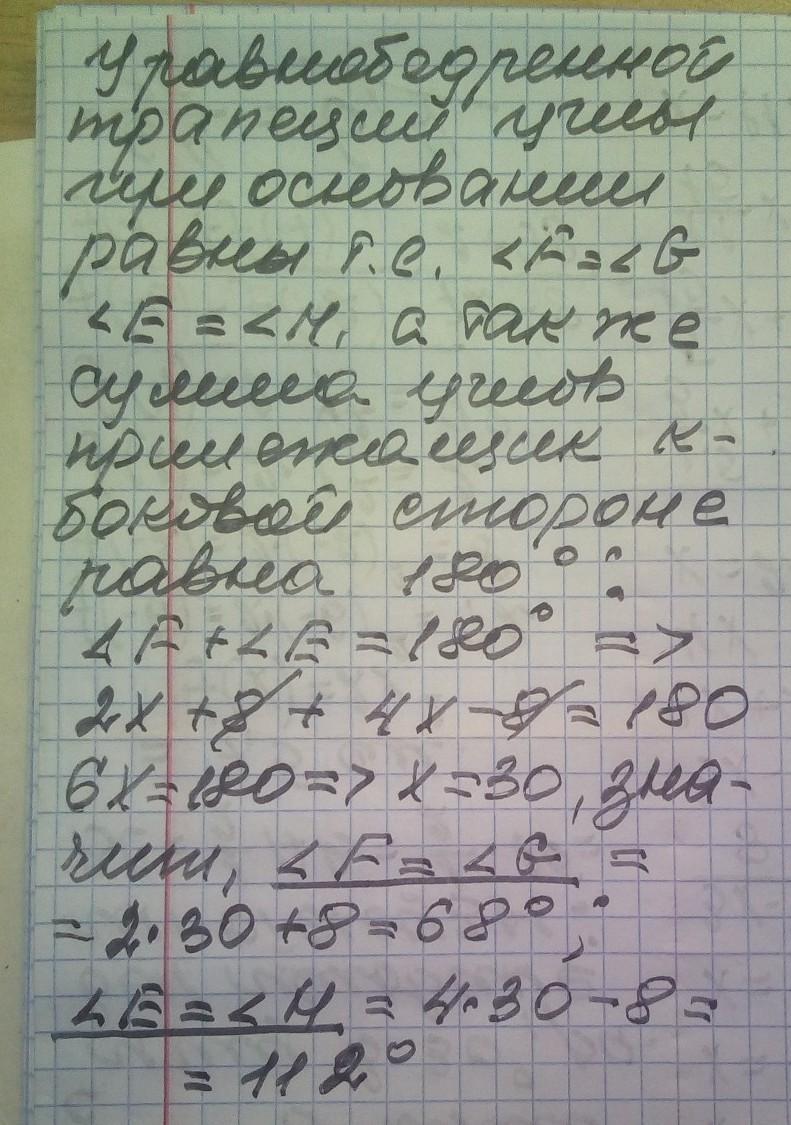 У равнобедренной
трапеции углы
при основании
равны т.е. ∠F=∠G
∠E=∠H, а так же
сумма углов
прилежащих к-
боковой стороне
равна 180°:
∠F+∠E=180° =>
2x+8+4x-8=180
6x=180=>x=30, зна-
чит, ∠F=∠G=
=2·30+8=68°;
∠E=∠H=4·30-8=
=112°